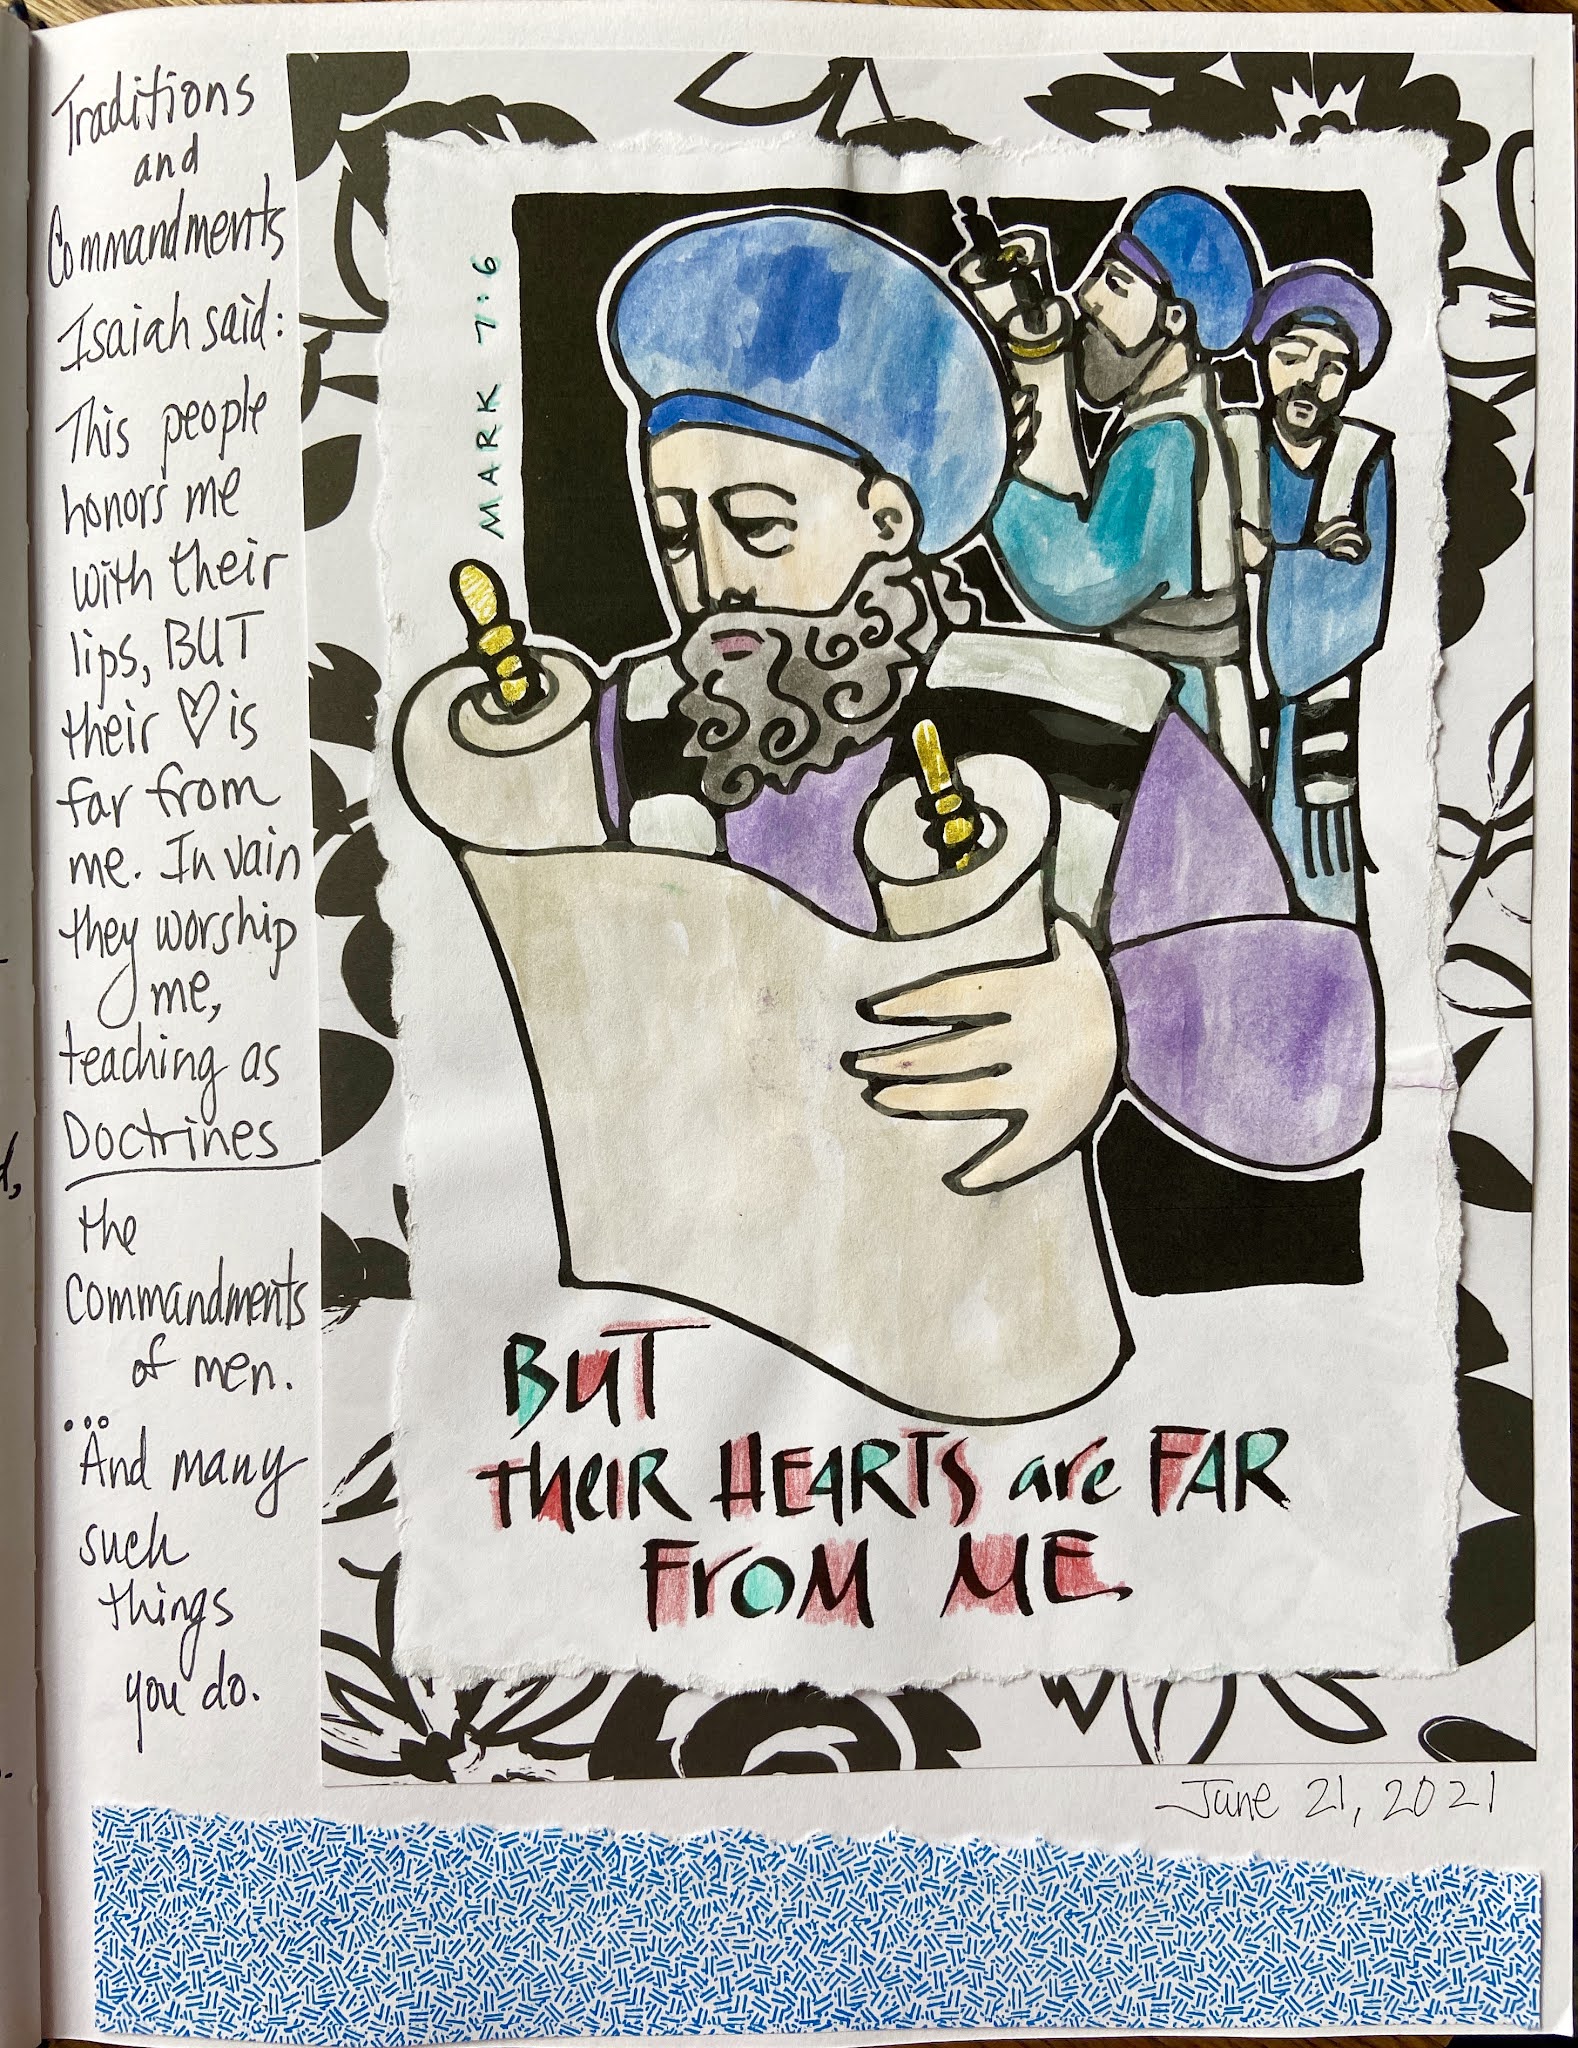 Traditions
and
Commandments
Isaiah said:
This people
honors me
with their
lips, BUT
their ♡ is
far from
me. In vain
they worship
me,
teaching as
Doctrines
the
Commandments
of men.
...
And many
such
things
you do.
MARK 7:6
BUT
their HEARTS are FAR
FROM ME
June 21, 2021